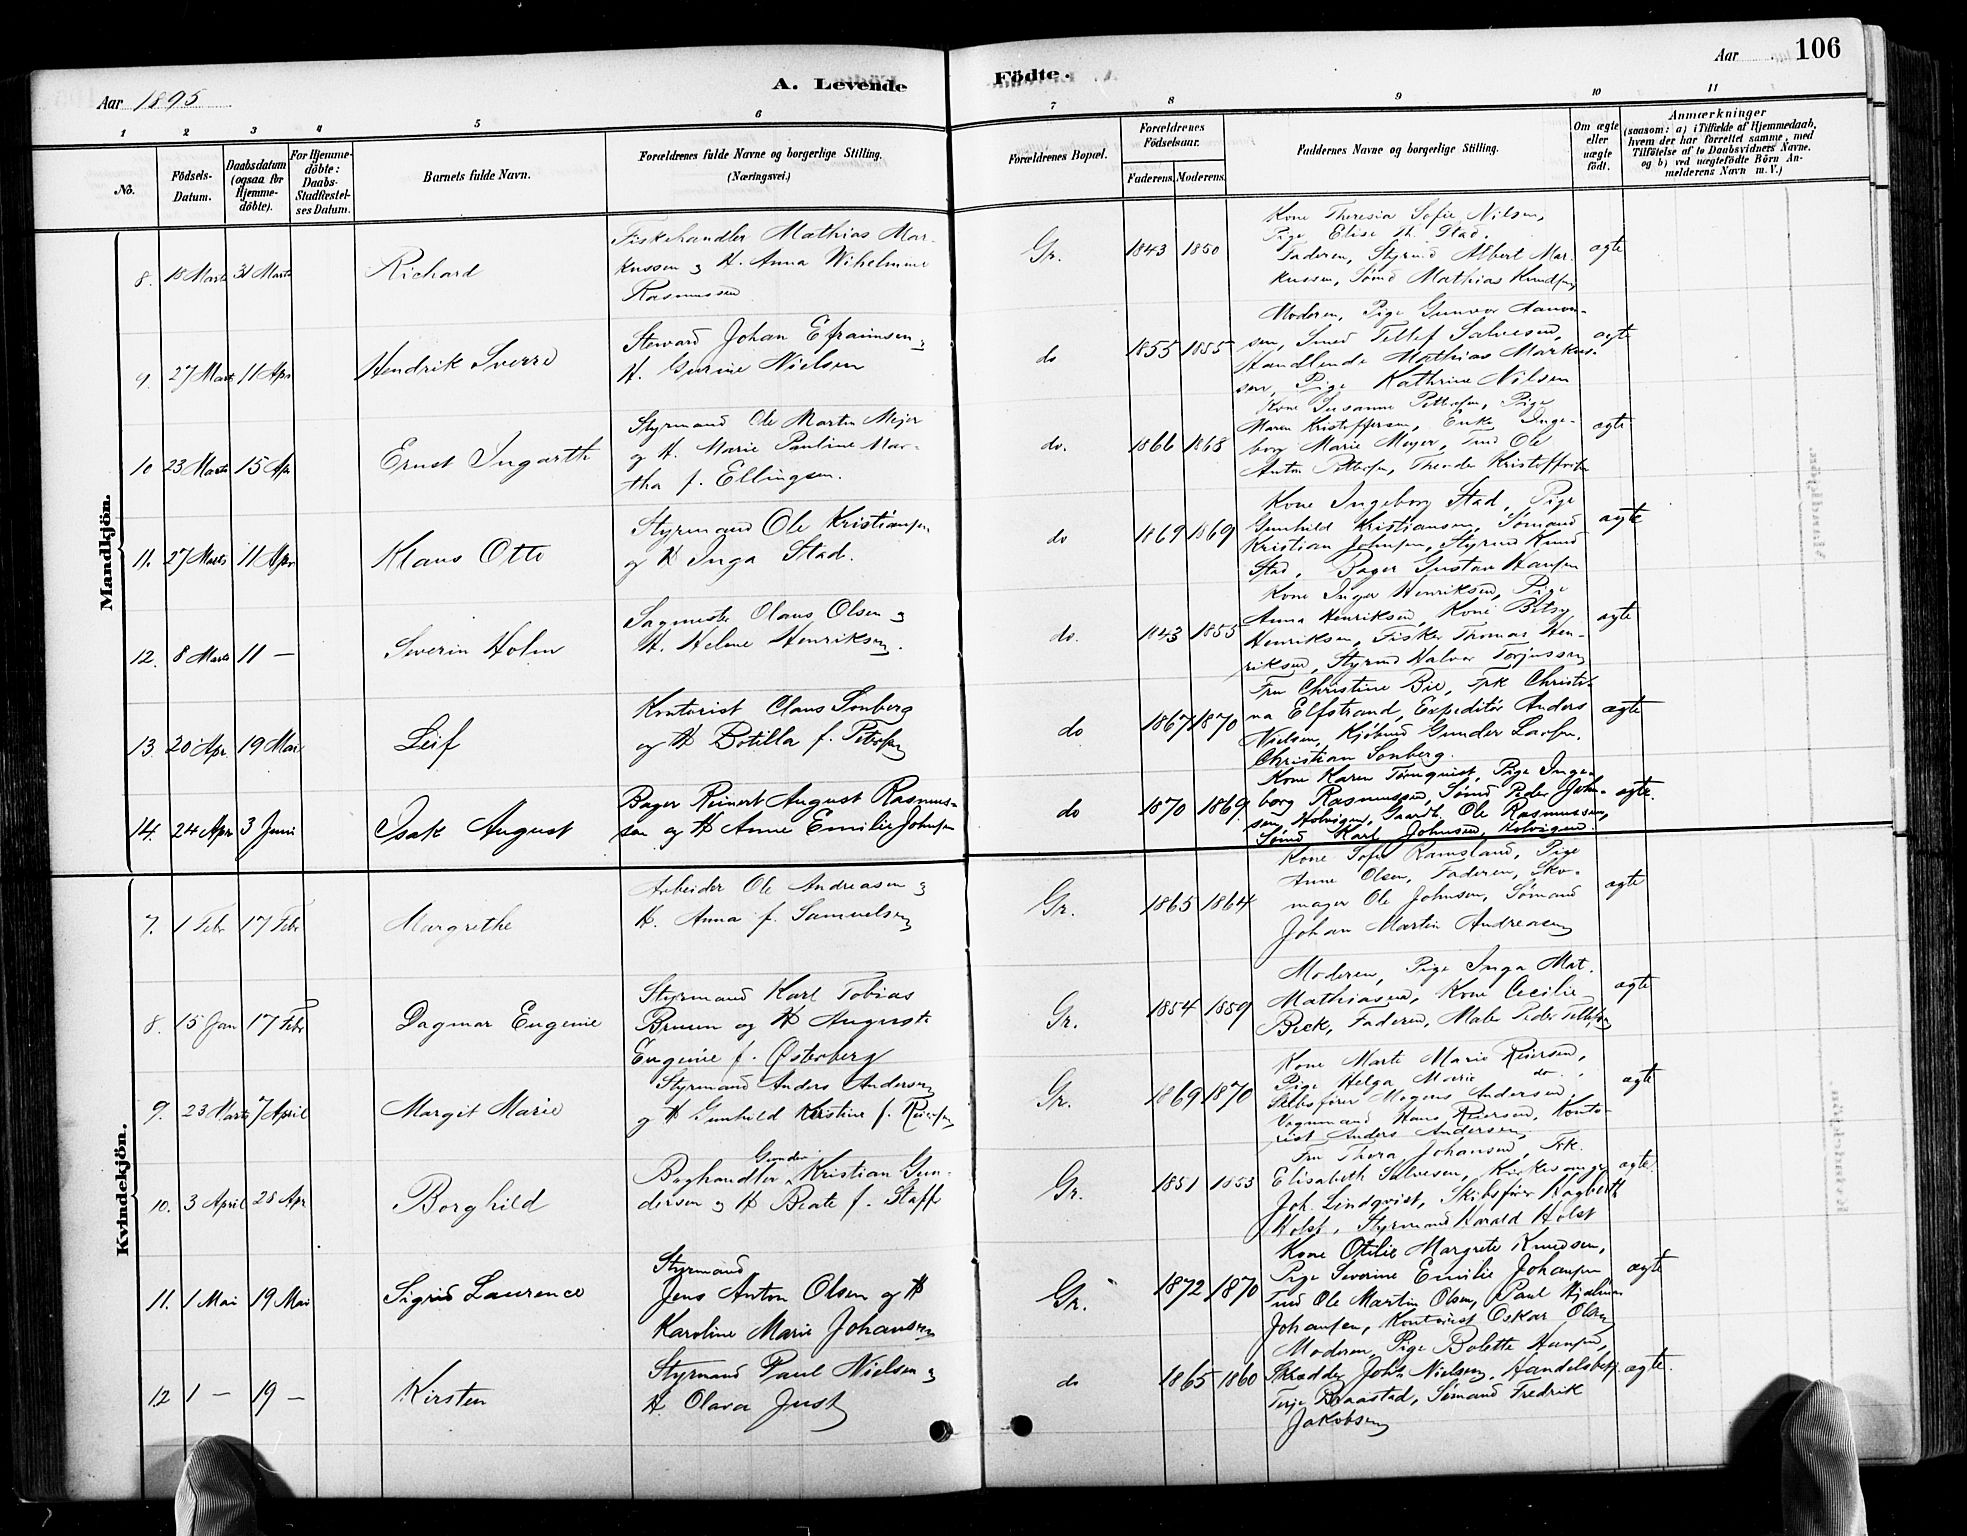 Aar 1895
A. Levende
Födte.
Aar
106
1 2 3 4 5 6 7 8 9 10 11
No.
Födsels-
Datum.
Daabsdatum
(ogsaa for
Hjemme-
döbte).
For Hjemme-
döbte:
Daabs-
Stadfæstel-
ses Datum.
Barnets fulde Navn.
Forældrenes fulde Navne og borgerlige Stilling.
(Næringsvei.)
Forældrenes Bopæl.
Forældrenes
Födselsaar.
Faderens. Moderens.
Faddernes Navne og borgerlige Stilling.
Om ægte
eller
uægte
född.
Anmærkninger
(saasom: a) i Tilfælde af Hjemmedaab,
hvem der har forrettet samme, med
Tilföielse af to Daabsvidners Navne.
og b) ved uægtefödte Börn An-
melderens Navn m. V.)
Mandkjön.
8. 18 Marts 31 Marts
Richard
Fiskehandler Mathias Mar-
kussen og H. Anna Wilhelmine
Rasmussen
Gr. 1843 1850
Kone Theresia Sofie Nilsen,
Pige Elise M. Stad.
Faderen, Styrmd Albert Mar-
kussen, Sømd Mathias Knudsen
ægte
9. 27 Marts 11 Apr
Hendrik Sverre
Steward Johan Efraimsen og
H. Gurine Nielsen
do 1855 1855
Moderen, Pige Gunvor Aanon-
sen, Smed Tellef Salvesen,
Handlende Mathias Markus-
sen, Pige Kathrine Nilsen
ægte
10 23 Marts 15 Apr
Ernst Ingarth
Styrmand Ole Martin Mejer
og H. Marie Pauline Mar-
tha f. Ellingsen.
do. 1866 1868
Kone Susanne Pettersen, Pige
Maren Kristoffersen, Enke Inge-
borg Marie Meyer, Tmd Ole
Anton Pettersen, Theodor Kristoffersen
ægte
11. 27 Marts 11 Apr
Klaus Otto
Styrmand Ole Kristiansen
og H Inga Stad.
do 1869 1869
Kone Ingeborg Stad, Pige
Gunhild Kristiansen, Sømand
Kristian Johnsen, Styrmd Knud
Stad, Bager Gustav Hansen
ægte
12. 8 Marts 11 —
Severin Holm
Sagmester Olaus Olsen og
H. Helene Henriksen.
do. 1843 1855
Kone Inger Henriksen, Pige
Anna Henriksen, Kone Betsy
Henriksen, Fisker Thomas Hen-
riksen, Styrmd Halvor Torjussen
ægte
13. 20 Apr. 19 Mai
Leif
Kontorist Claus Sonberg
og H Botilla f. Petersen
do 1867 1870
Fru Christine Bie, Frk Christi-
na Elfstrand, Expeditør Anders
Nielsen, Kjøbmd Gunder Larsen,
Christian Sonberg.
ægte
14. 24 Apr 3 Juni
Isak August
Bager Reinert August Rasmus-
sen og H Anne Emilie Johnsen
do 1870 1869
Kone Karen Tørnquist, Pige Inge-
borg Rasmussen, Sømd Peder John-
sen, Holvigen, Gaardb. Ole Rasmussen,
Sømd Karl Johnsen, Holvigen.
ægte.
Kvindekjön.
7. 1 Febr 17 Febr
Margrethe
Arbeider Ole Andreasen og
H. Anna f. Samuelsen
Gr. 1865 1864
Kone Sofie Ramsland, Pige
Anne Olsen, Faderen, Sko-
mager Ole Johnsen, Sømand
Johan Martin Andreasen
ægte
8. 15 Jan 17 Febr
Dagmar Eugenie
Styrmand Karl Tobias
Bruun og H Auguste
Eugenie f. Østerberg
Gr. 1854 1859
Moderen, Pige Inga Mat.
Mathiasen, Kone Cecilie
Beck, Faderen, Maler Peder Tellefsen
ægte
9. 23 Marts 7 April
Margit Marie
Styrmand Anders Andersen
og H Gunhild Kristine f. Reiersen
Gr. 1869 1870
Kone Marte Marie Reiersen,
Pige Helga Marie do.,
Skibsfører Mogens Andersen,
Vognmand Hans Reiersen, Konto-
rist Anders Andersen,
ægte
10. 3 April 28 Apr
Borghild
Boghandler Gunder Kristian Gun-
dersen og H Beate f. Staff
Gr. 1851 1853
Fru Thora Johansen, Frk.
Elisabeth Salvesen, Kirkesanger
Joh. Lindqvist, Skibsfører Hagbarth
Holst, Styrmand Harald Holst
ægte.
11. 1 Mai 19 Mai
Sigrid Laurence
Styrmand
Jens Anton Olsen og H
Karoline Marie Johansen
Gr. 1872 1870
Kone Otilie Margrete Knudsen,
Pige Severine Emilie Johansen
Tmd Ole Martin Olsen, Paul Hjalmar
Johansen, Kontorist Oskar Olsen
ægte
12 1 — 19 —
Kirsten
Styrmand Paul Nielsen og
H. Olava Just
do 1865 1860
Moderen, Pige Bolette Hansen,
Skrædder John Nielsen, Handelsbetj.
Terje Braastad, Sømand Fredrik
Jakobsen
ægte.